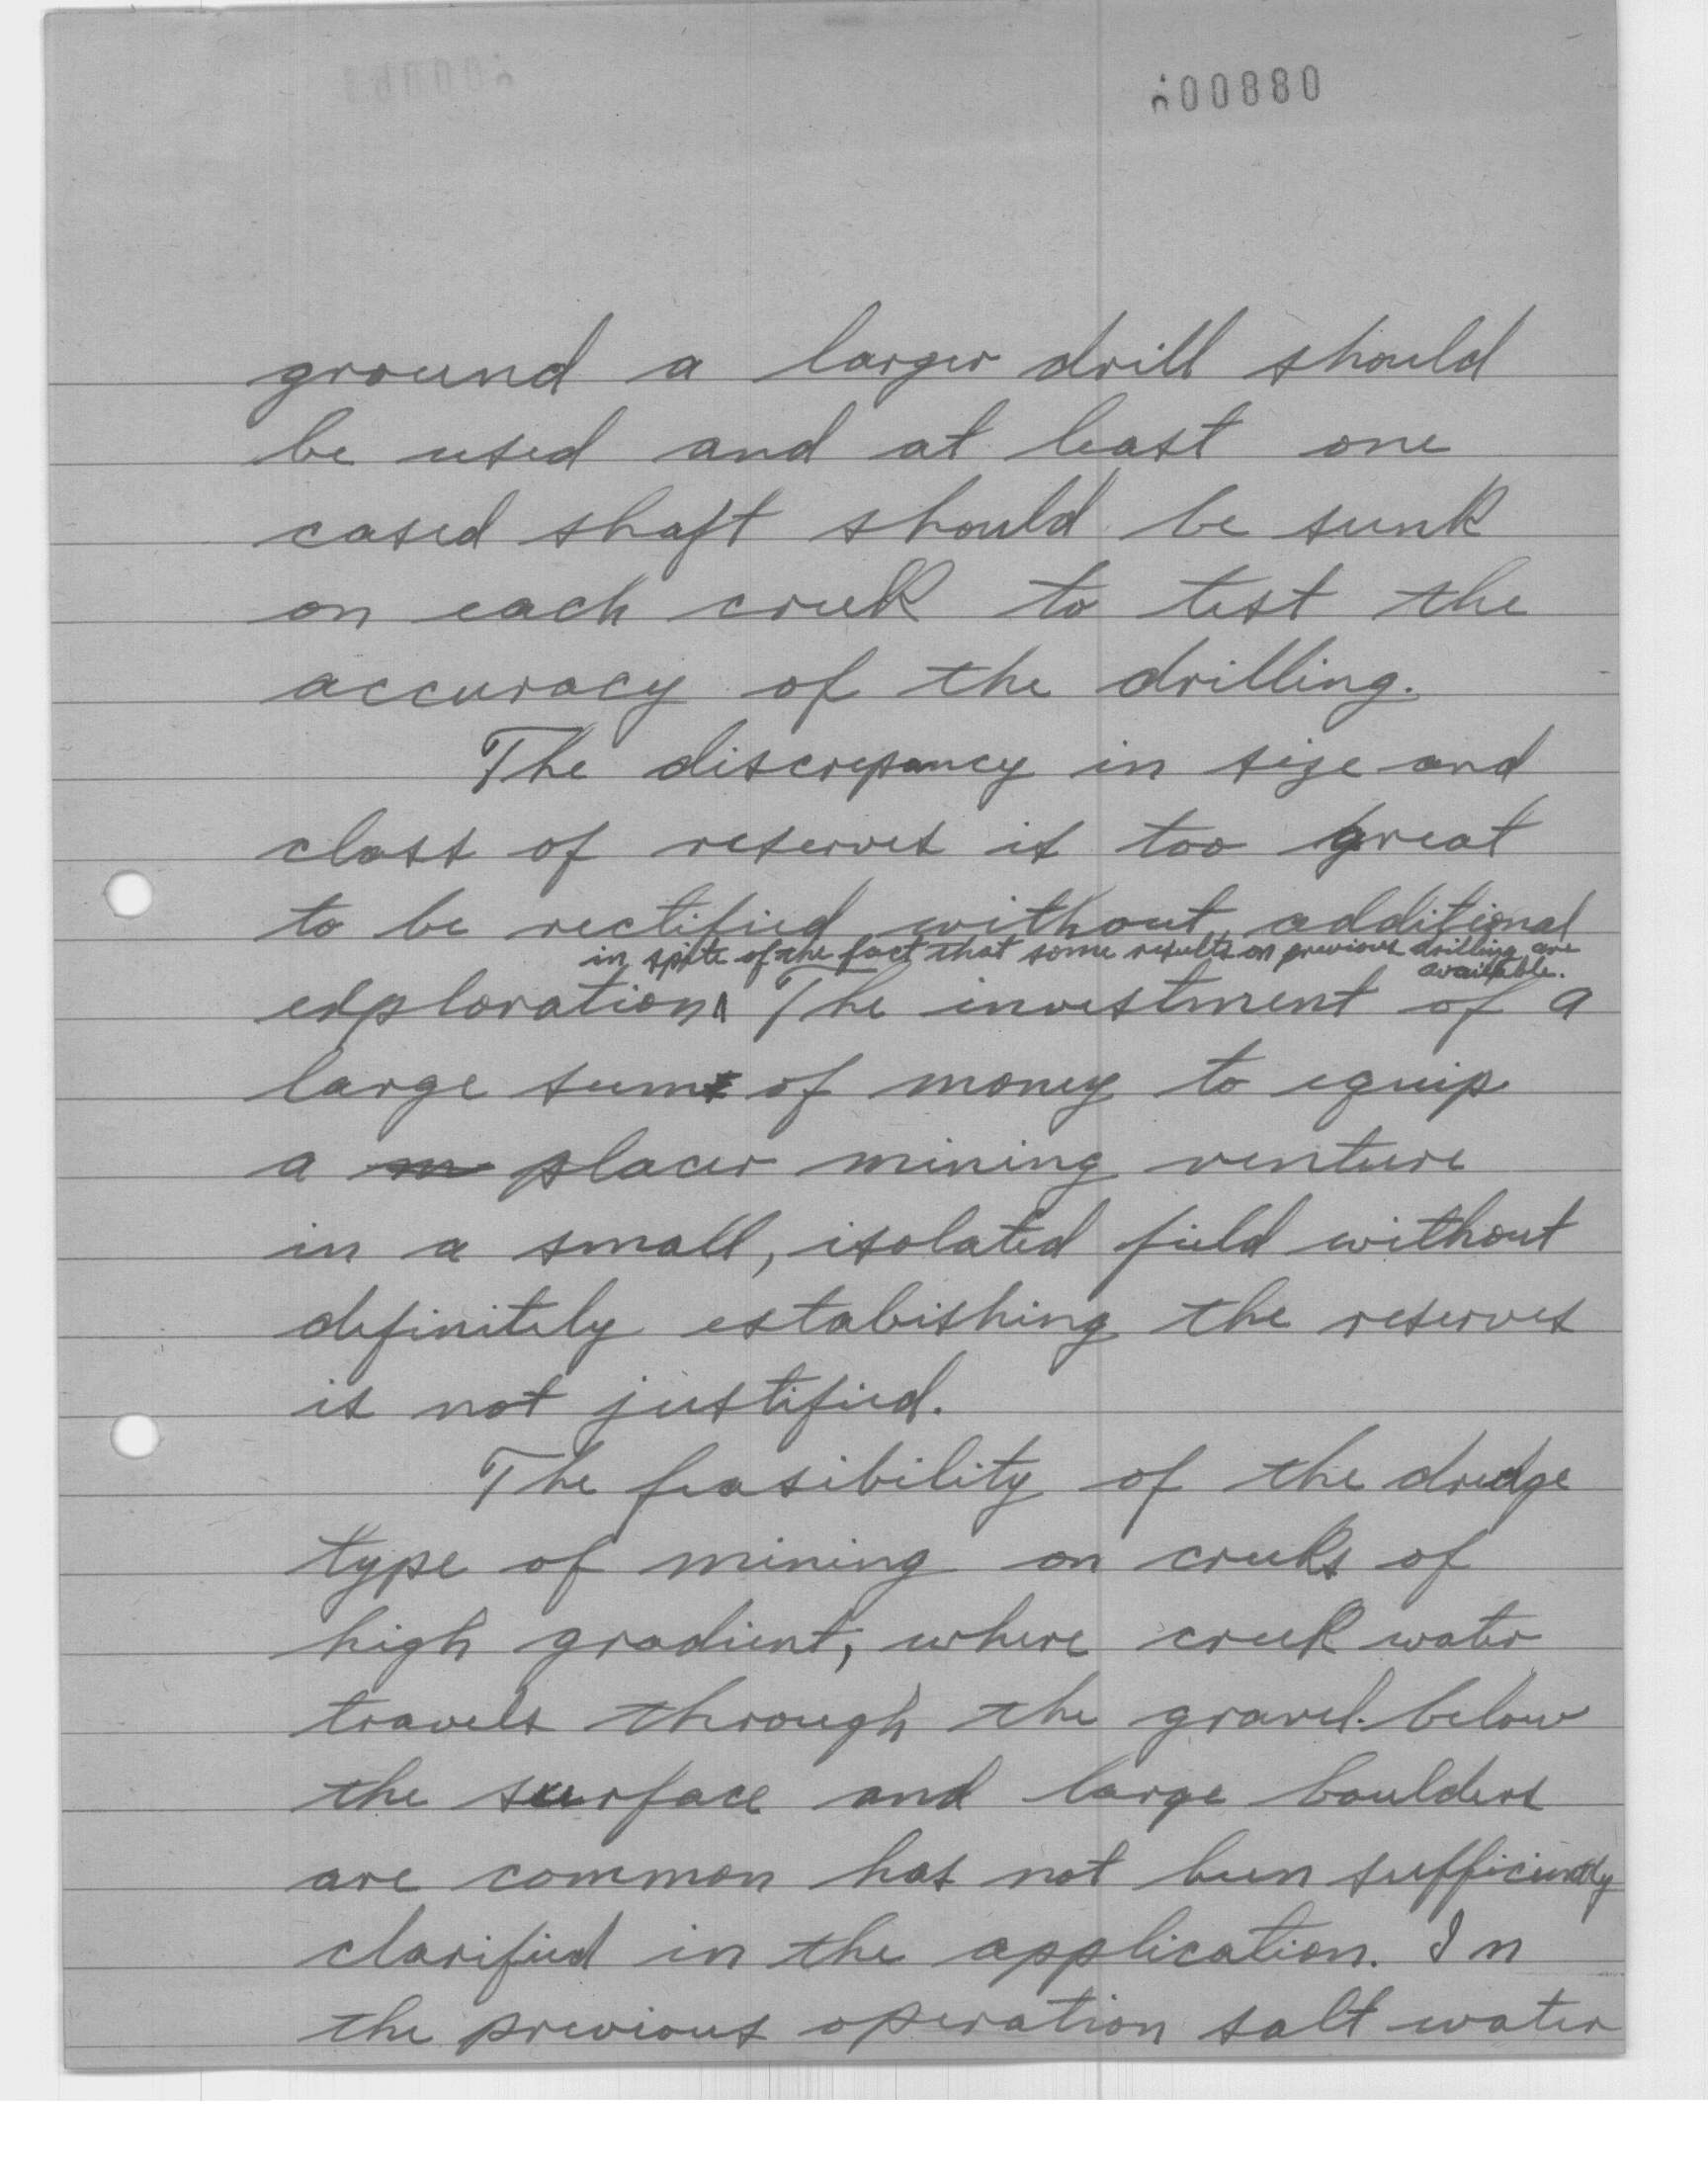 00880
ground a larger drill should
be used and at least one
cased shaft should be sunk
on each creek to test the
accuracy of the drilling.
The discrepancy in size and
class of reserves is too great
to be rectified without additional
in spite of the fact that some results on previous drilling are
available.
exploration. The investment of a
large sum of money to equip
a m placer mining venture
in a small, isolated field without
definitely estabishing the reserves
is not justified.
The feasibility of the dredge
type of mining on creeks of
high gradient, where creek water
travels through the gravel below
the surface and large boulders
are common has not been sufficiently
clarified in the application. In
the previous operation salt water